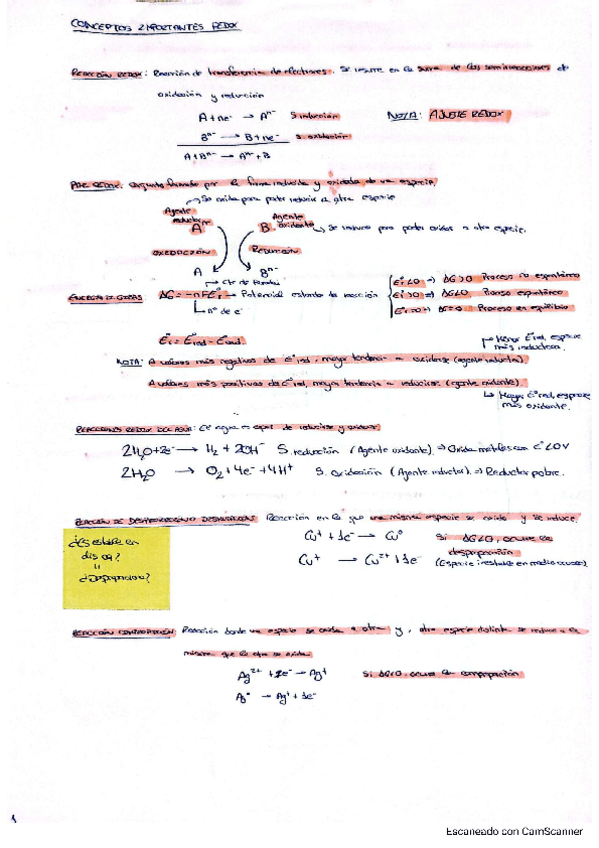 CONCEPTOS IMPORTANTES REDOX
REACCIÓN REDOX: Reacción de transferencia de electrones. Se resume en la suma de las semirreacciones de
oxidación y reducción
A + ne⁻ → Aⁿ⁻ S. reducción NOTA: AJUSTE REDOX
Bⁿ⁻ → B + ne⁻ S. oxidación
A + Bⁿ⁻ → Aⁿ⁻ + B
PAR REDOX: Conjunto formado por la forma reducida y oxidada de una especie.
→ Se oxida para poder reducir a otra especie
Agente reductor Agente oxidante
A B → Se reduce para poder oxidar a otra especie.
OXIDACIÓN REDUCCIÓN
A Bⁿ⁻
→ Cte de Faraday E°r<0 ⇒ ΔG>0 Proceso no espontáneo
ENERGÍA DE GIBBS ΔG = -nFE°r → Potencial estándar de reacción E°r>0 ⇒ ΔG<0, Proceso espontáneo
↳ nº de e⁻ E°r=0 ⇒ ΔG=0 Proceso en equilibrio
→ Menor E°red, especie
más reductora.
NOTA: A valores más negativos de E°red, mayor tendencia a oxidarse (agente reductor).
A valores más positivos de E°red, mayor tendencia a reducirse (agente oxidante).
↳ Mayor E°red, especie
más oxidante.
REACCIONES REDOX DEL AGUA: El agua es capaz de reducirse y oxidarse
2H₂O + 2e⁻ → H₂ + 2OH⁻ S. reducción (Agente oxidante) ⇒ Oxida metales con E°<0V
2H₂O → O₂ + 4e⁻ + 4H⁺ S. Oxidación (Agente reductor) ⇒ Reductor pobre.
REACCIÓN DE Reacción en la que una misma especie se oxida y se reduce.
¿Es estable en
dis aq?
¿Desproporciona?
Cu⁺ + 1e⁻ → Cu⁰ Si ΔG<0, ocurre la
desproporción
Cu⁺ → Cu²⁺ + 1e⁻ (Especie inestable en medio acuoso)
REACCIÓN Reacción donde una especie se oxida a otra y, otra especie distinta se reduce a la
misma que la otra se oxida.
Ag²⁺ + 1e⁻ → Ag⁺ Si ΔG<0, ocurre la comproporción
Ag⁰ → Ag⁺ + 1e⁻
1
Escaneado con CamScanner